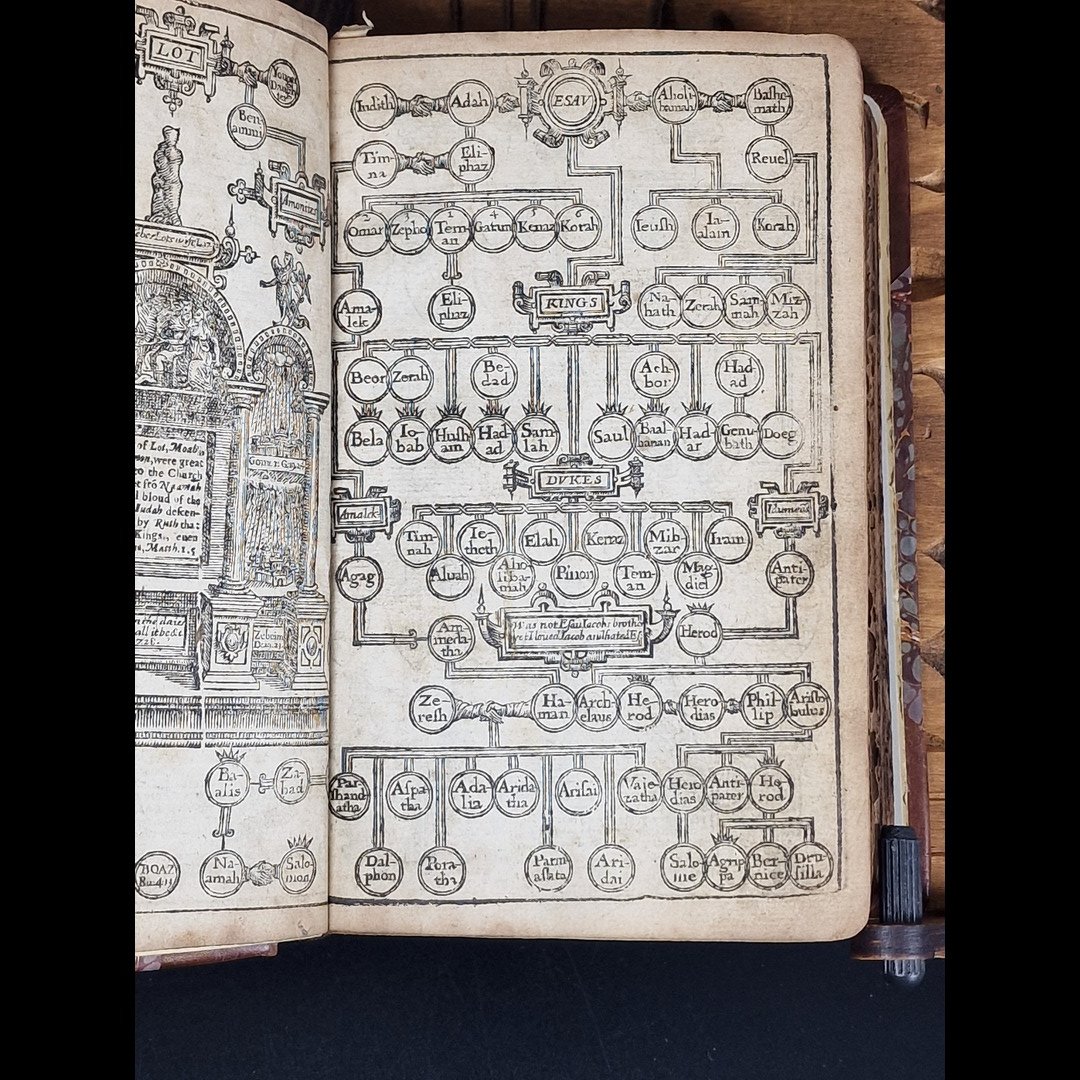 LOT
Ben
ammi
Amonites
of Lot, Moab
were great
to the Church
bloud of the
Iudah descen-
by Ruth tha:
Kings, euen
Matth. 1. 5
in the daies
Zeboim
Ba-
alis
Za-
bad
BOAZ
Na-
amah
Salo-
mon
Iudith
Adah
ESAV
Aholi
bamah
Bashe-
math
Tim-
na
Eli-
phaz
Reuel
2
Omar
3
Zepho
1
Tem
an
4
Gatum
5
Kenaz
6
Korah
Ieush
Ia-
alain
Korah
Ama-
lek
Eli-
phaz
KINGS
Na-
hath
Zerah
Sam-
mah
Miz-
zah
Beor
Zerah
Be-
dad
Ach-
bor
Had-
ad
Bela
Io-
bab
Hush
am
Had
ad
Sam-
lah
Saul
Baal-
hanan
Had-
ar
Genu-
bath
Doeg
DVKES
Amalek
Idumeus
Tim-
nah
Ie-
theth
Elah
Kenaz
Mib-
zar
Iram
Agag
Aluah
Aho-
liba-
mah
Pinon
Tem-
an
Mag-
diel
Anti-
pater
Am-
meda-
tha
Was not Esau Iacobs brother
yet I loued Iacob and hated Es.
Herod
Ze-
resh
Ha-
man
Arch-
elaus
He-
rod
Hero-
dias
Phil-
lip
Aristo-
bulus
Par
shand
atha
Aspa-
tha
Ada-
lia
Arida
tha
Arisai
Vaje-
zatha
Hero-
dias
Anti-
pater
He-
rod
Dal-
phon
Pora-
tha
Parm
asata
Ari-
dai
Salo-
me
Agrip-
pa
Ber-
nice
Dru-
silla